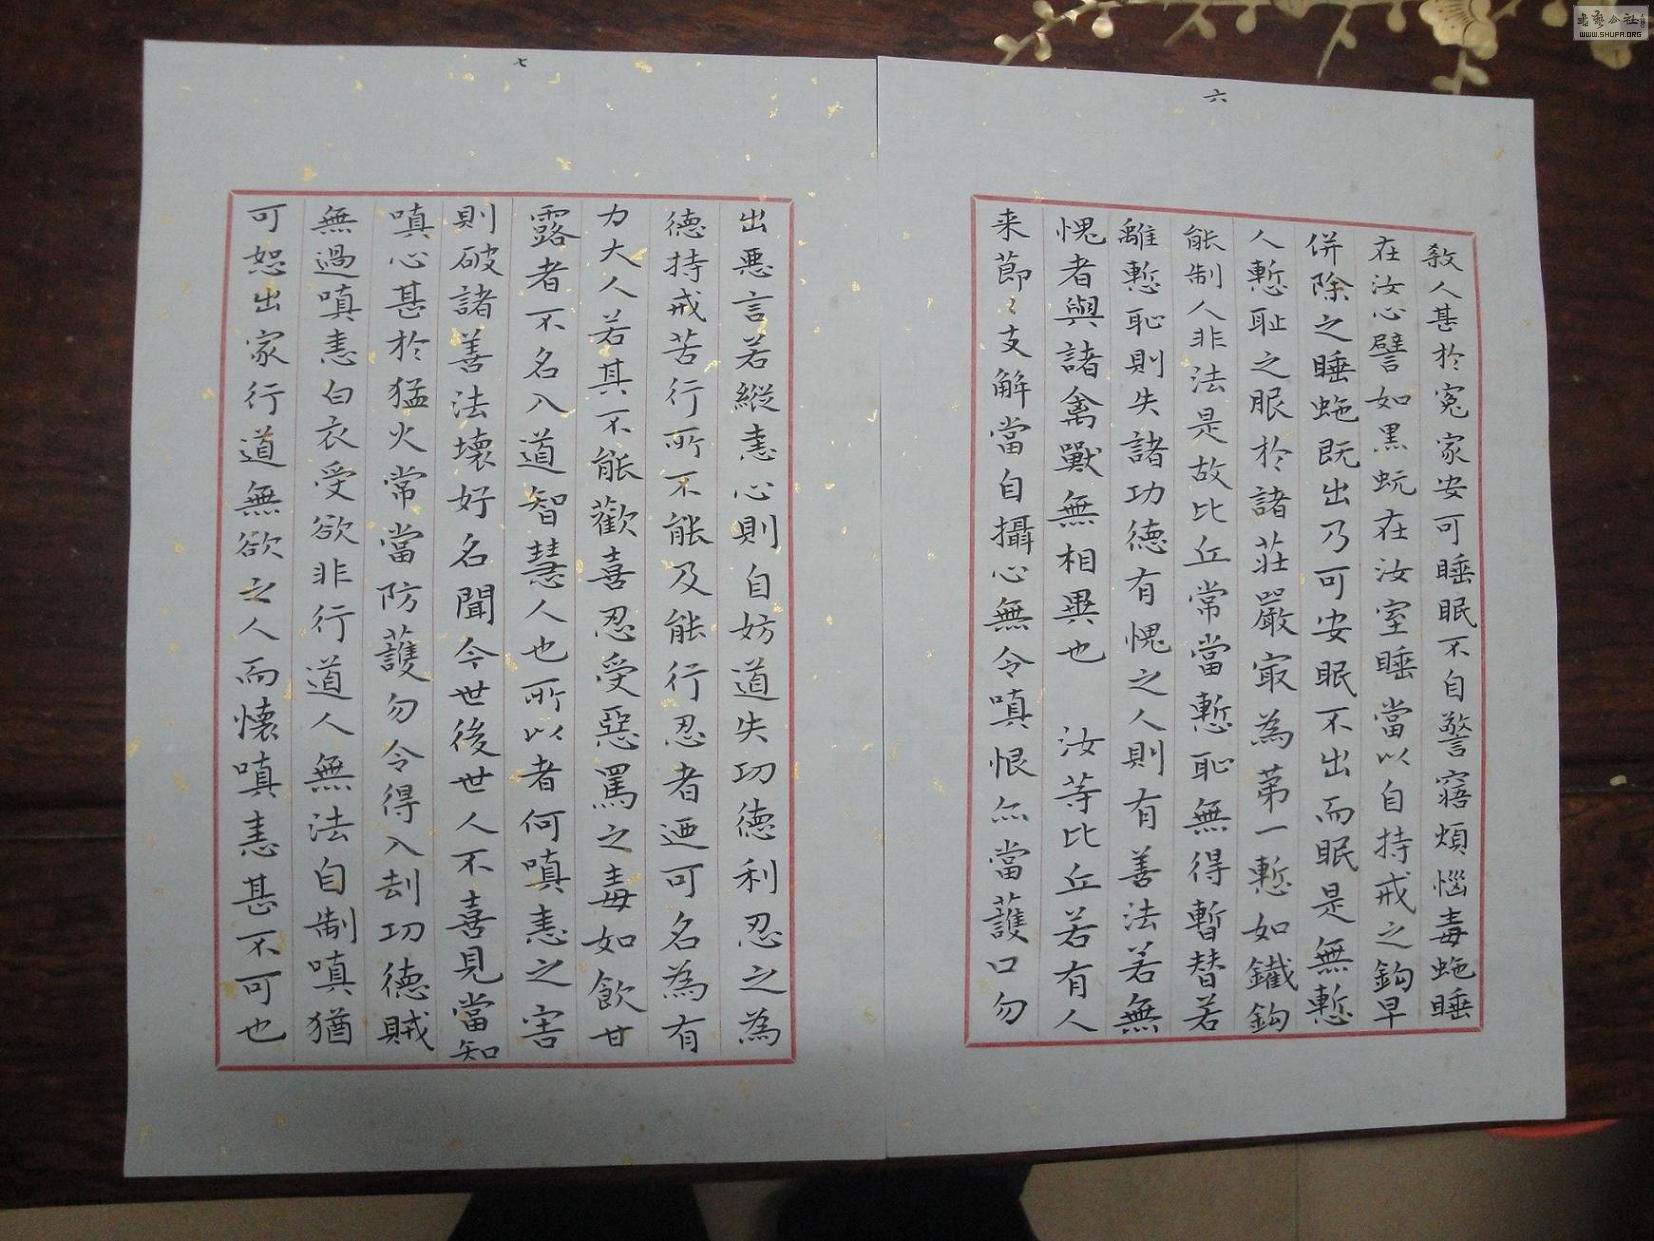 六
殺人甚於冤家安可睡眠不自警寤煩惱毒虵睡
在汝心譬如黑蚖在汝室睡當以自持戒之鈎早
併除之睡虵既出乃可安眠不出而眠是無慙
人慙耻之服於諸莊嚴最為第一慙如鐵鈎
能制人非法是故比丘常當慙恥無得暫替若
離慙恥則失諸功德有愧之人則有善法若無
愧者與諸禽獸無相異也 汝等比丘若有人
来節〻支解當自攝心無令嗔恨亦當護口勿
七
出悪言若縱恚心則自妨道失功德利忍之為
德持戒苦行所不能及能行忍者迺可名為有
力大人若其不能歡喜忍受惡罵之毒如飲甘
露者不名入道智慧人也所以者何嗔恚之害
則破諸善法壞好名聞今世後世人不喜見當知
嗔心甚於猛火常當防護勿令得入刦功德賊
無過嗔恚白衣受欲非行道人無法自制嗔猶
可恕出家行道無欲之人而懷嗔恚甚不可也
書藝公社
WWW.SHUFA.ORG